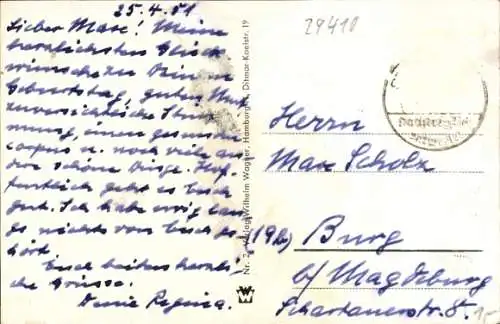 25.4.51
Lieber Max! Meine
herzlichsten Glück-
wünsche zu Deinem
Geburtstag, guten Mut
zuversichtliche Stim-
mung, einen gesunden
corpus u. noch viele an-
dre schöne Dinge. Hof-
fentlich geht es Euch
gut. Ich habe ewig lan-
ge nichts von Euch ge-
hört.
Euch beiden herzli-
che Grüsse.
Deine Regina.
Nr. 2 Verlag Wilhelm Wagner, Hamburg 1, Ditmar-Koelstr. 19
29410
Herrn
Max Scholz
(19b) Burg
b/ Magdeburg
Schartauerstr. 8.